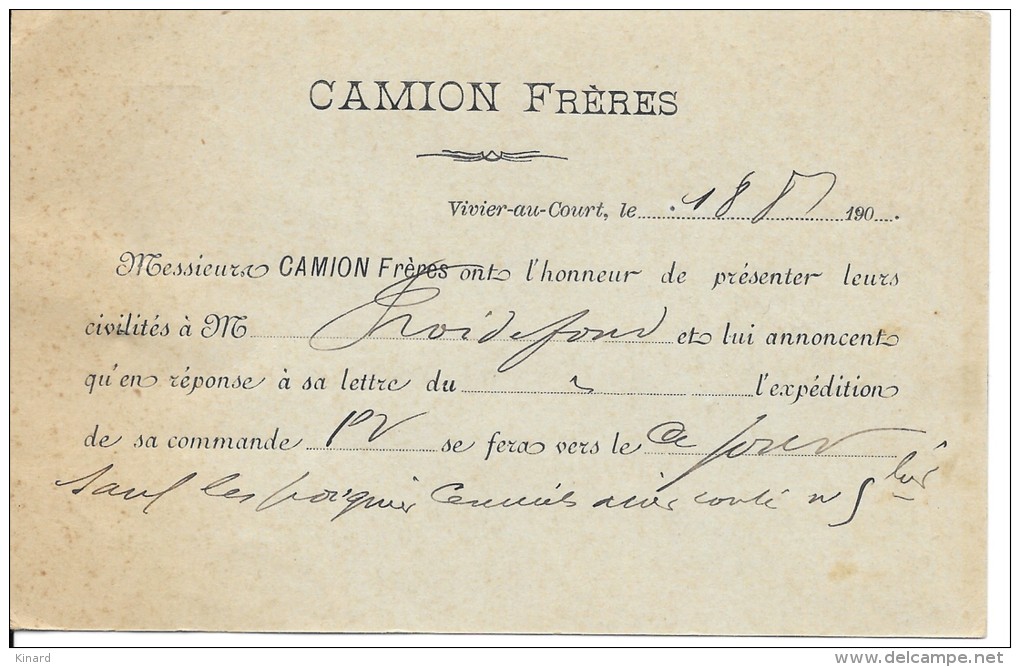 CAMION FRÈRES
Vivier-au-Court, le 18 8 190
Messieurs CAMION Frères ont l'honneur de présenter leurs
civilités à M Froidefond et lui annoncent
qu'en réponse à sa lettre du l'expédition
de sa commande se fera vers le ce jour
sauf les
Kinard
delcampe.net